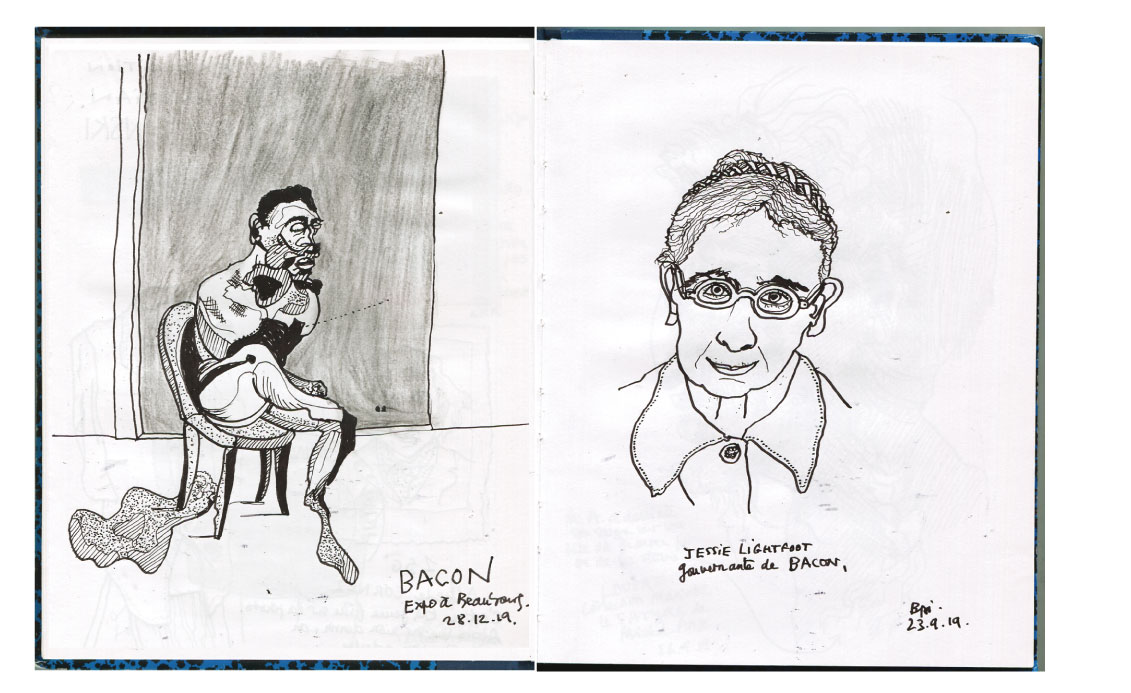 BACON
Expo à Beaubourg.
28.12.19.
JESSIE LIGHTFOOT
gouvernante de BACON.
Bpi.
23.9.19.